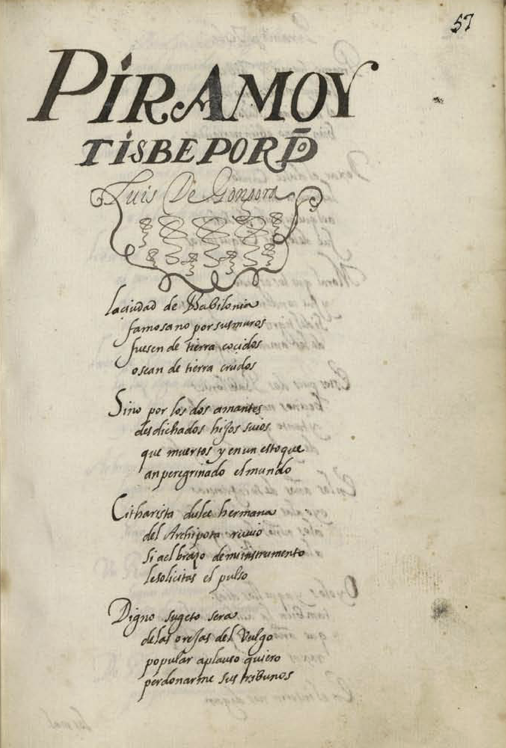 57
PIRAMO Y
TISBE POR D
Luis De Gongora
laciudad de Babilonia
famosa no por sus muros
fuesen de tierra cocidos
o sean de tierra crudos
Sino por los dos amantes
desdichados hijos suios
que muertos y en un estoque
an peregrinado el mundo
Citharista dulce hermana
del Archipota ruvio
si al braço de mi instrumento
le solicitas el pulso
Digno sugeto sera
de las orejas del Vulgo
popular aplauso quiero
perdonarme sus tribunos